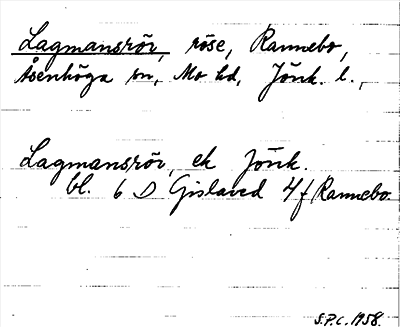 Lagmansrör, röse, Rannebo,
Åsenhöga sn, Mo hd, Jönk. l.,
Lagmansrör, ek Jönk.
bl. 6 D Gislaved 4f Rannebo.
S.P.C. 1958.